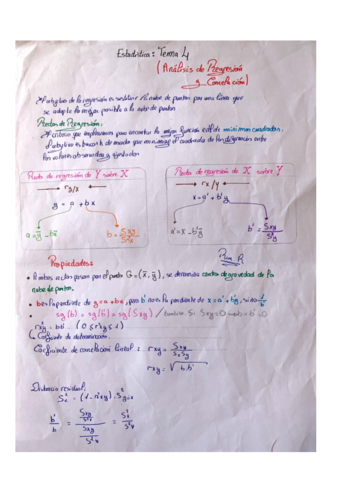 Estadística: Tema 4
(Análisis de Regresión
y Correlación)
El objetivo de la regresión es sustituir la nube de puntos por una línea que
se adapte lo mejor posible a la nube de puntos
Rectas de Regresión:
El criterio que emplearemos para encontrar la mejor función es el de mínimos cuadrados.
El objetivo es hacerlo de modo que minimice el cuadrado de las diferencias entre
los valores observados y ajustados
Recta de regresión de Y sobre X
ry/x
y = a + bx
a = ȳ - bx̄
b = Sxy/S²x
Recta de regresión de X sobre Y
rx/y
x = a' + b'y
a' = x̄ - b'ȳ
b' = Sxy/S²y
Propiedades:
Ambas rectas pasan por el punto G = (x̄, ȳ), se denomina centro de gravedad de la
nube de puntos.
b es la pendiente de y = a + bx, pero b' no es la pendiente de x = a' + b'y, sino 1/b'
sg(b) = sg(b') = sg(Sxy) / también si Sxy = 0 b = b' = 0
r²xy = bb' (0 ≤ r²xy ≤ 1)
Coeficiente de determinación.
Coeficiente de correlación lineal: rxy = Sxy/SxSy
rxy = √b.b'
Varianza residual:
S²e = (1 - r²xy) . S²y
b'/b = (Sxy/S²y)/(Sxy/S²x) = S²x/S²y